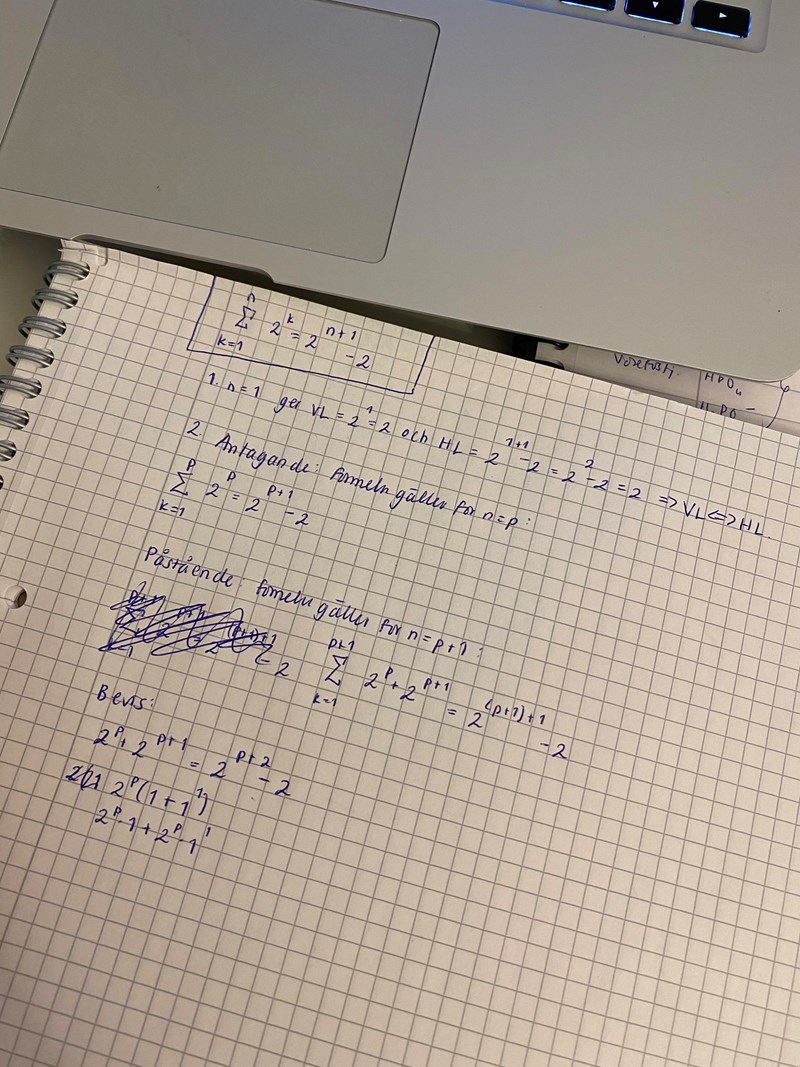 n
∑ 2^k = 2^(n+1) - 2
k=1
1. n=1 ger VL = 2^1 = 2 och HL = 2^(1+1) - 2 = 2^2 - 2 = 2 => VL <=> HL.
2. Antagande: formeln gäller för n=p:
p
∑ 2^p = 2^(p+1) - 2
k=1
Påstående: formeln gäller för n=p+1:
p+1
∑ 2^p + 2^(p+1) = 2^((p+1)+1) - 2
k=1
Bevis:
2^p + 2^(p+1) = 2^(p+2) - 2
2^p(1+1^1)
2^p·1 + 2^p·1^1
HPO₄